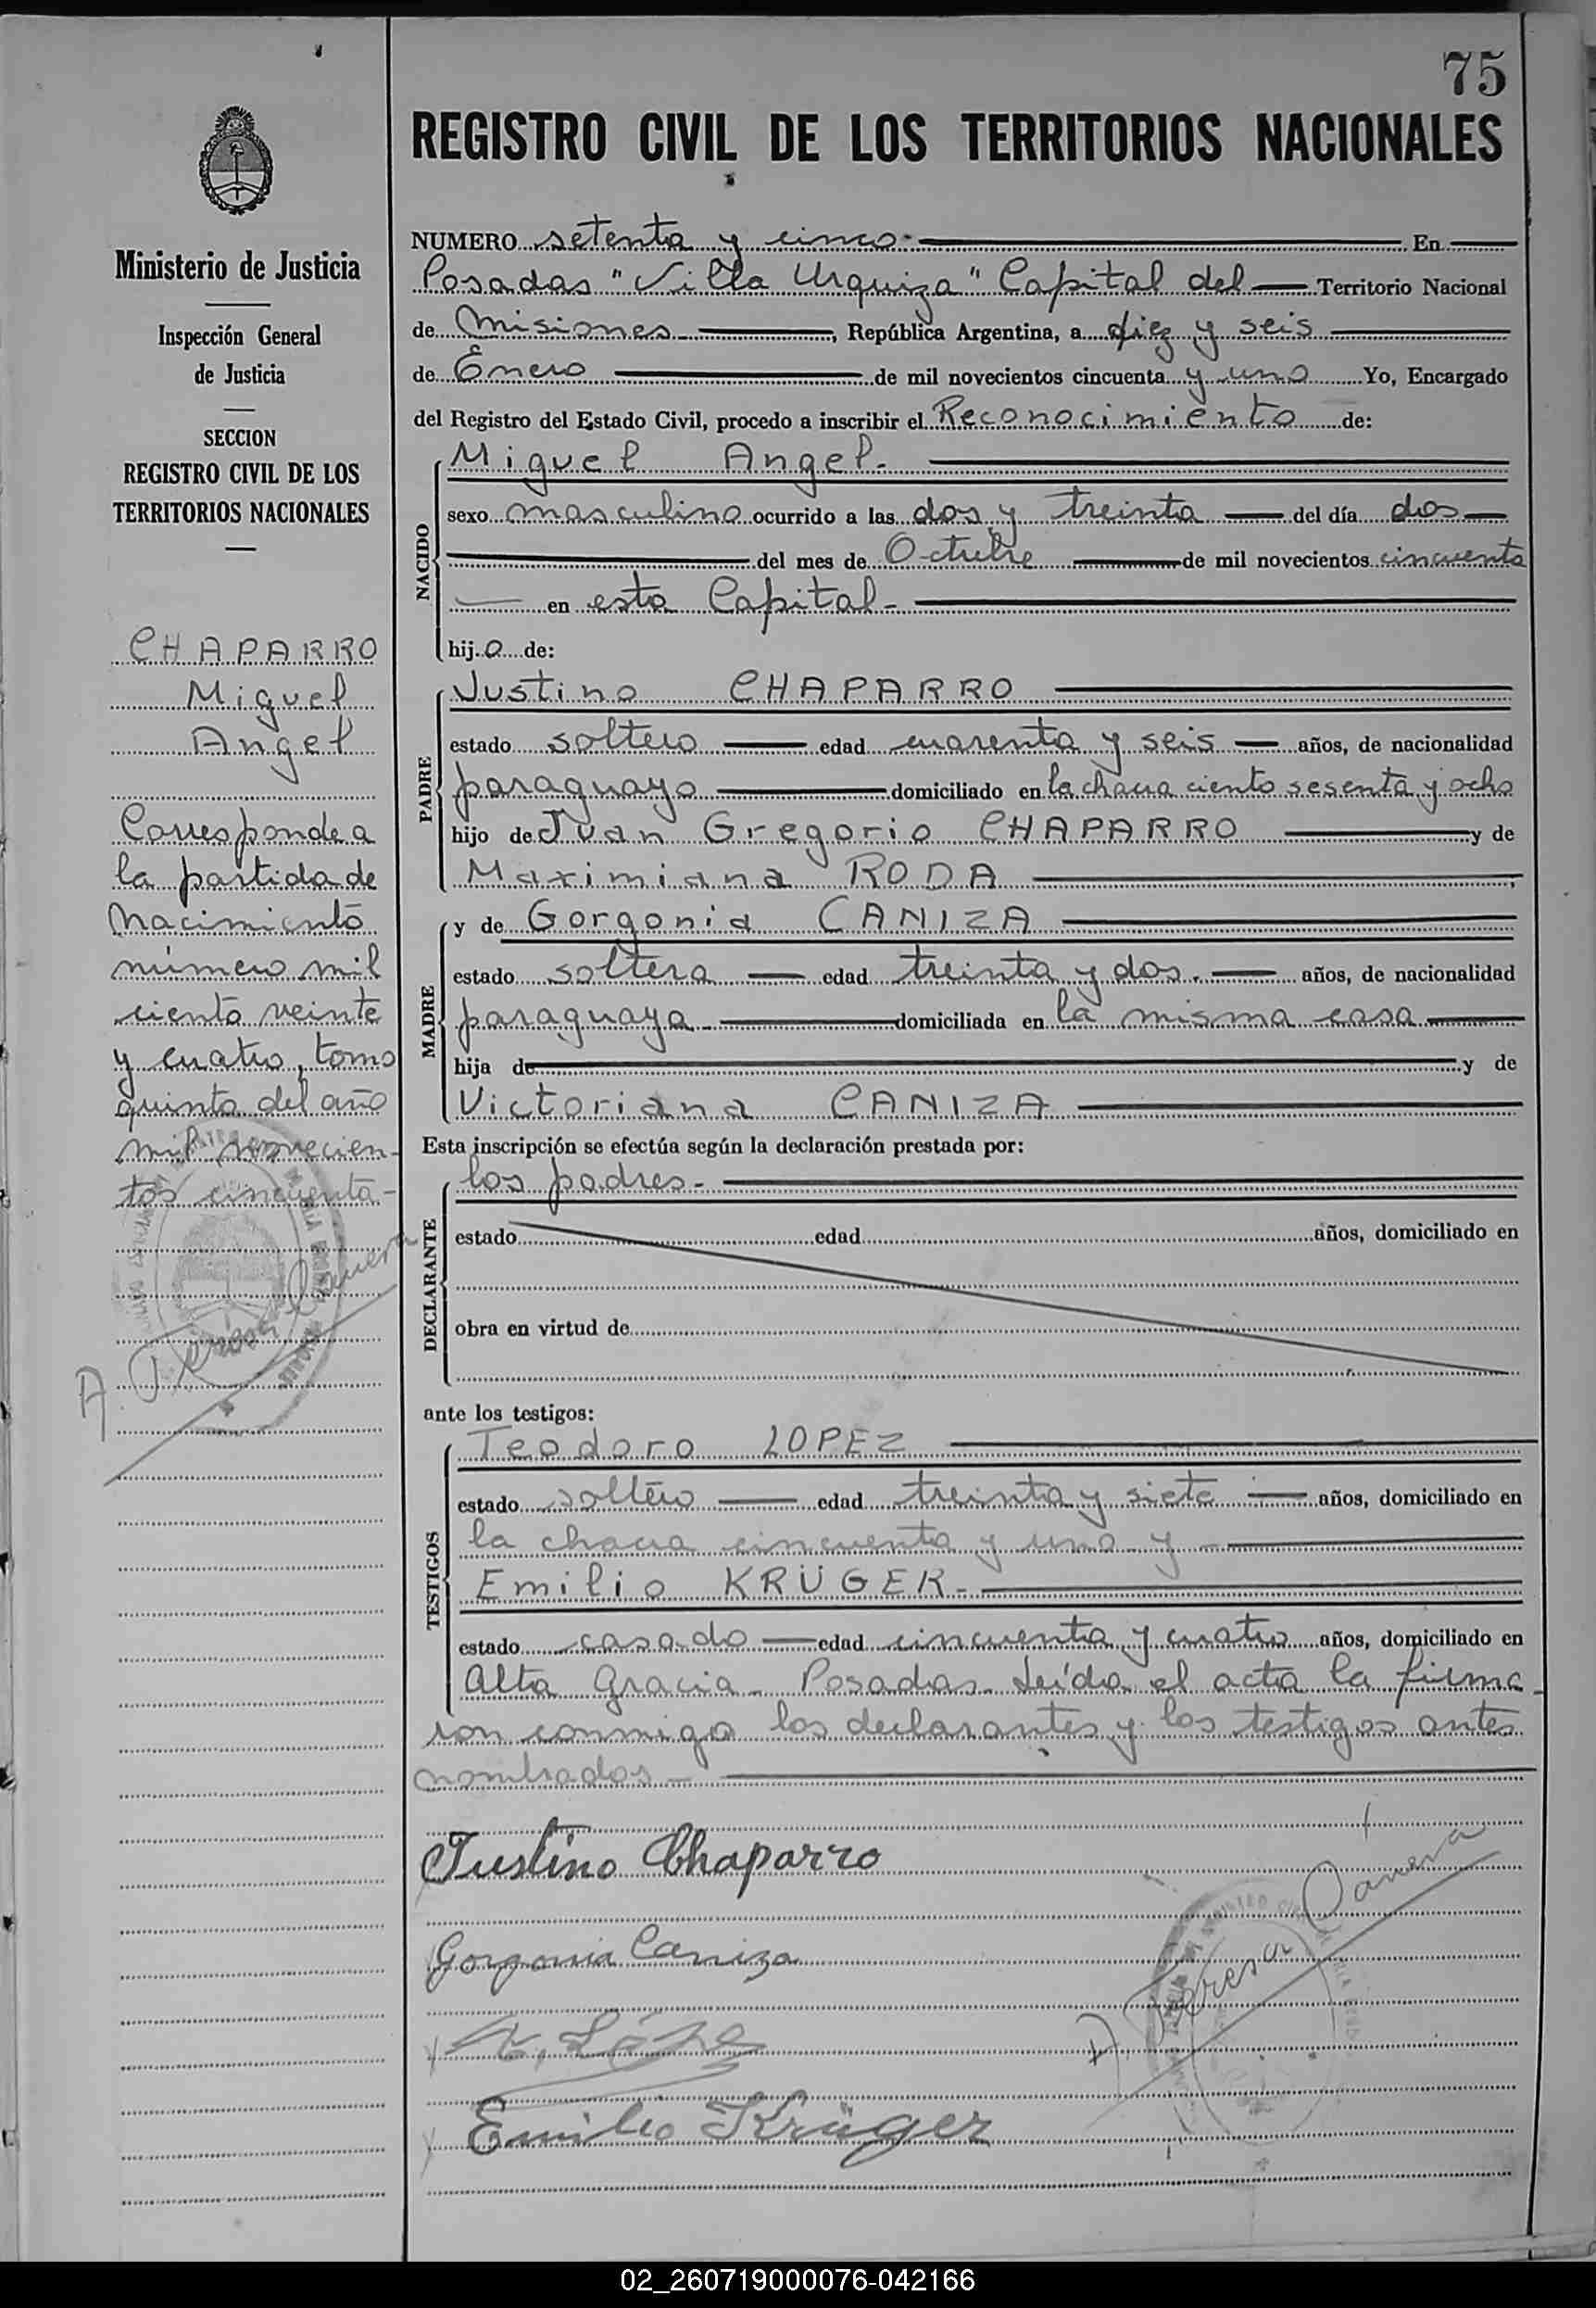 75
REGISTRO CIVIL DE LOS TERRITORIOS NACIONALES
Ministerio de Justicia
Inspección General
de Justicia
SECCION
REGISTRO CIVIL DE LOS
TERRITORIOS NACIONALES
CHAPARRO
Miguel
Angel
Corresponde a
la partida de
nacimiento
número mil
ciento veinte
y cuatro, tomo
quinto del año
mil novecien-
tos cincuenta-
A. Teresa Canera
NUMERO setenta y cinco.- En
Posadas "Villa Urquiza" Capital del Territorio Nacional
de Misiones, República Argentina, a diez y seis
de Enero de mil novecientos cincuenta y uno Yo, Encargado
del Registro del Estado Civil, procedo a inscribir el Reconocimiento de:
NACIDO
Miguel Angel.-
sexo masculino ocurrido a las dos y treinta del día dos
del mes de Octubre de mil novecientos cincuenta
en esta Capital-
hijo de:
PADRE
Justino CHAPARRO
estado soltero edad cuarenta y seis años, de nacionalidad
paraguayo domiciliado en la chacra ciento sesenta y ocho
hijo de Juan Gregorio CHAPARRO y de
Maximiana RODA
MADRE
y de Gorgonia CANIZA
estado soltera edad treinta y dos.- años, de nacionalidad
paraguaya domiciliada en la misma casa
hija de y de
Victoriana CANIZA
Esta inscripción se efectúa según la declaración prestada por:
DECLARANTE
los padres.-
estado edad años, domiciliado en
obra en virtud de
ante los testigos:
TESTIGOS
Teodoro LOPEZ
estado soltero edad treinta y siete años, domiciliado en
la chacra cincuenta y uno y -
Emilio KRÜGER-
estado casado edad cincuenta y cuatro años, domiciliado en
Alta Gracia- Posadas- Leída el acta la firma-
ron conmigo los declarantes y los testigos antes
nombrados-
Justino Chaparro
Gorgonia Caniza
A. Teresa Canera
Emilio Krüger
02_260719000076-042166